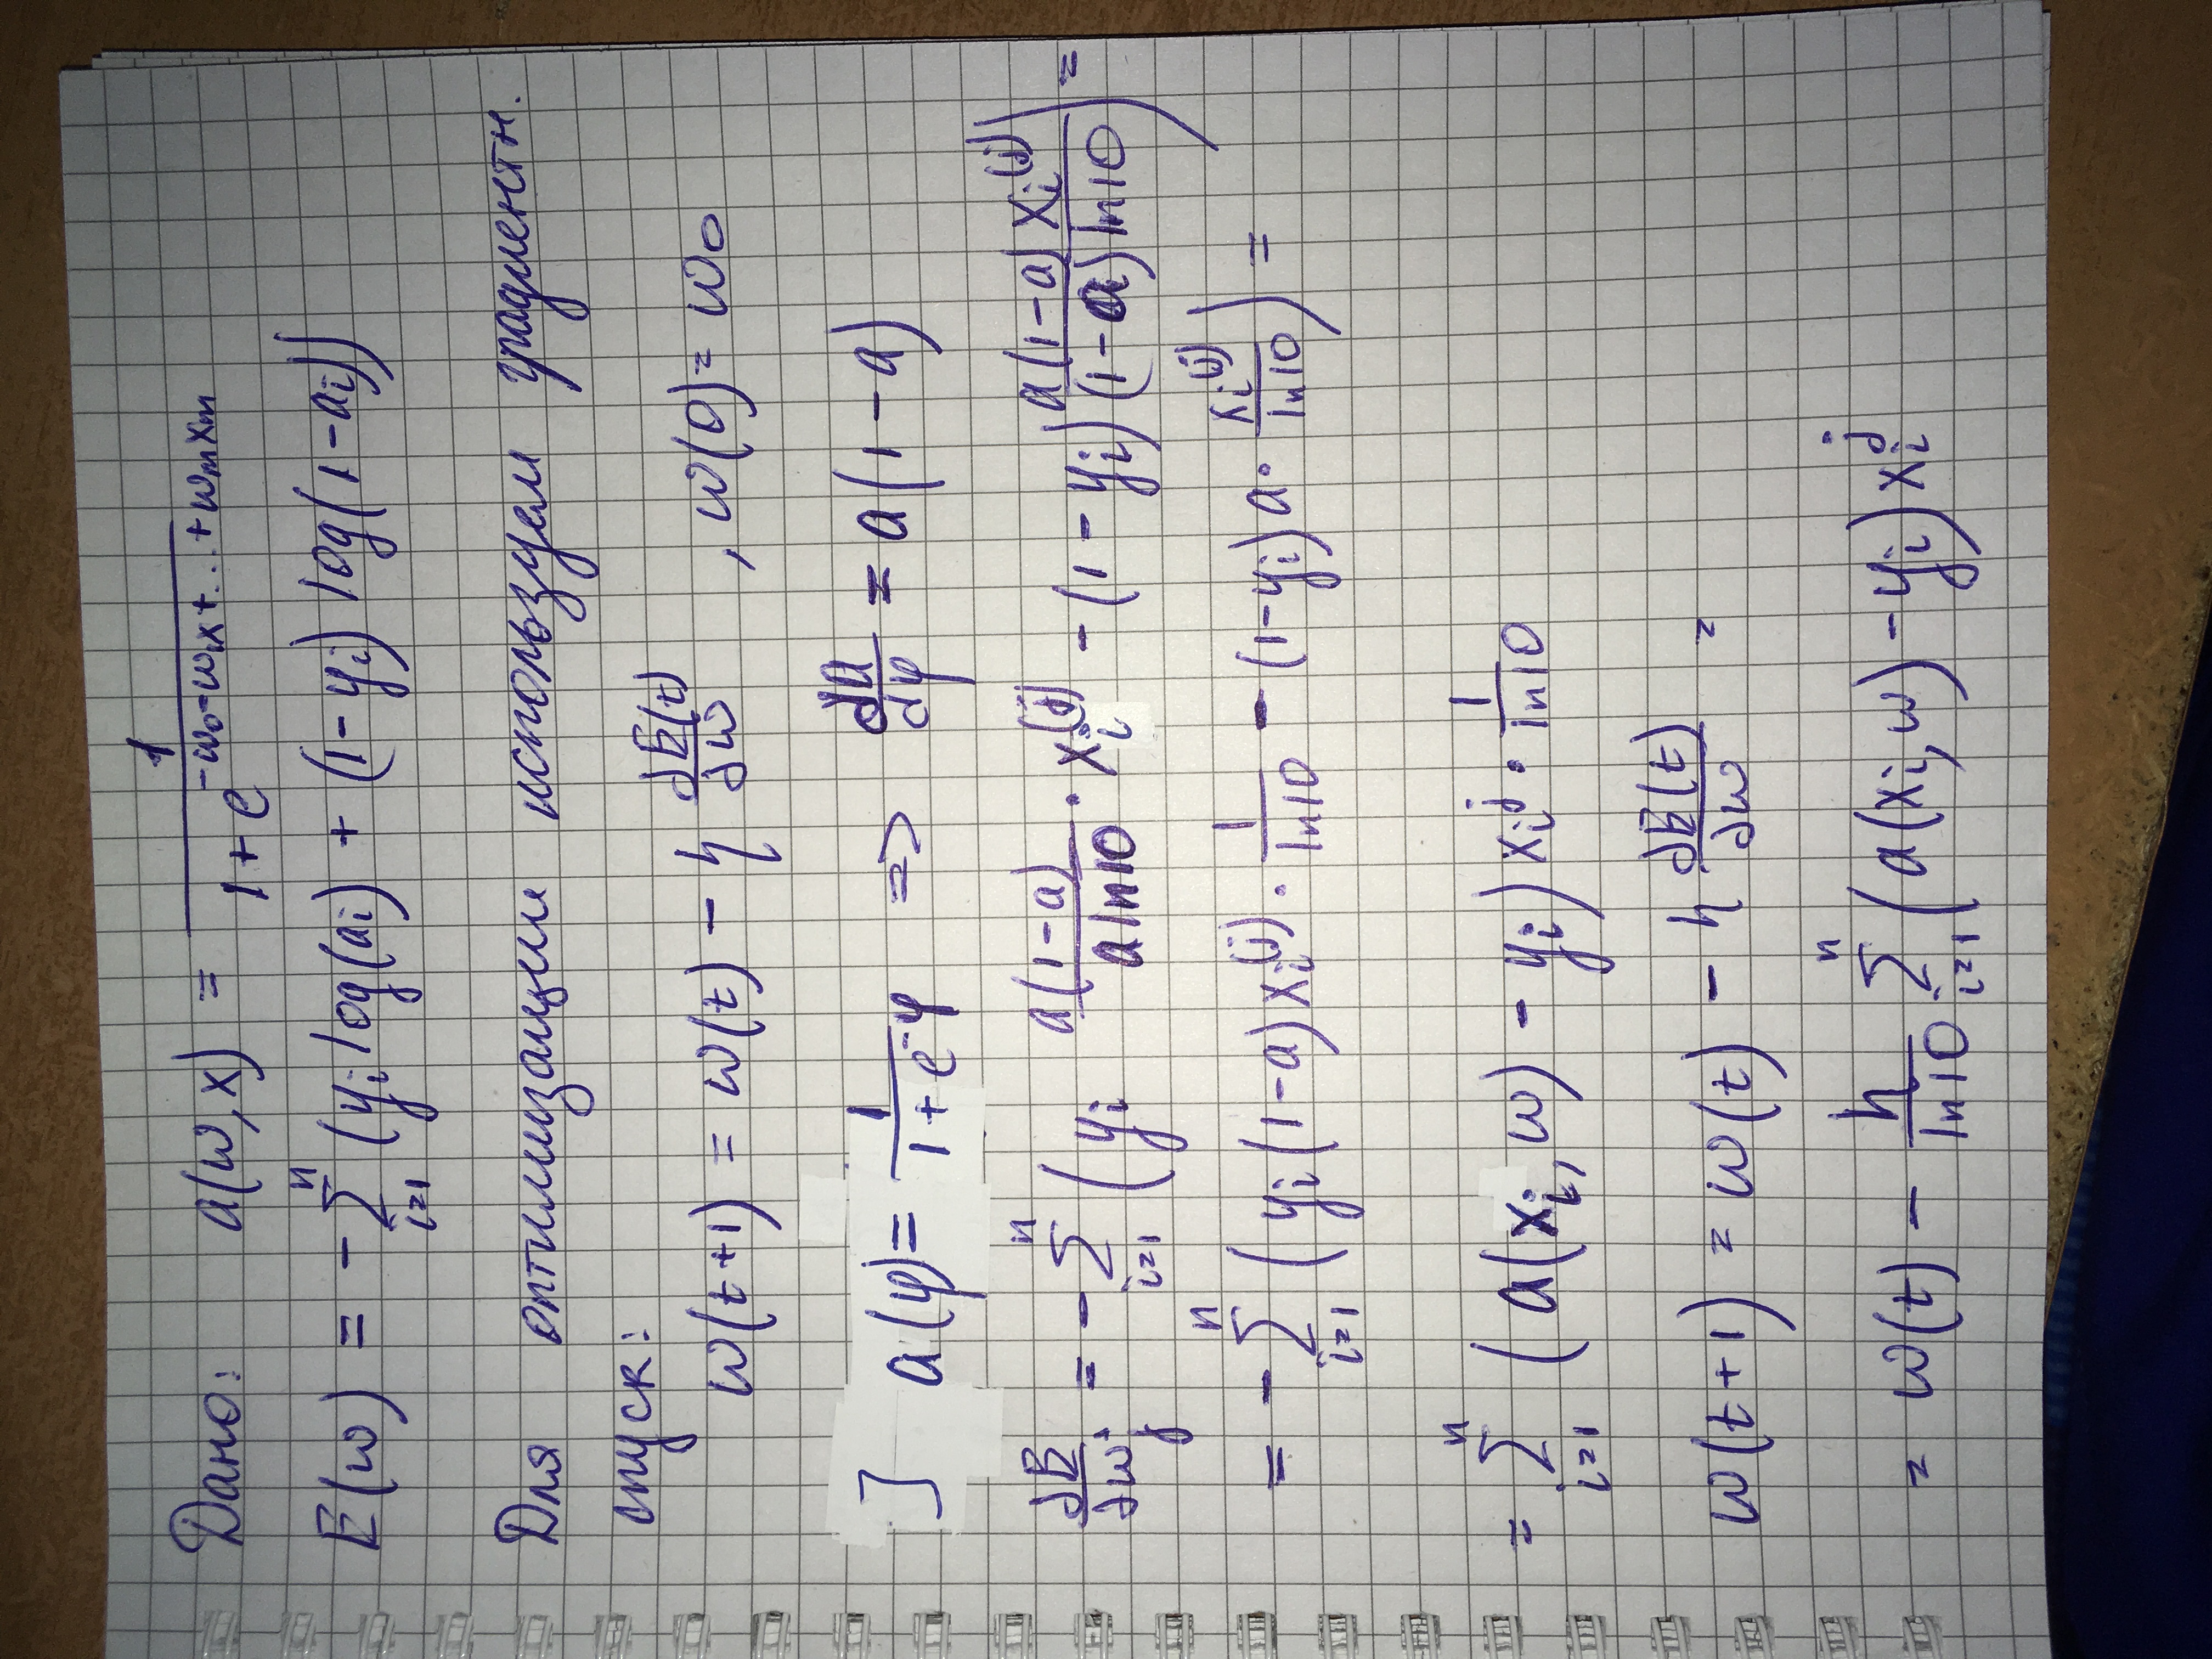 Дано: a(w,x) = 1 / (1 + e^(-w₀-w₁x+...+wₘxₘ))
E(w) = -∑_{i=1}^{n} (yᵢ log(aᵢ) + (1-yᵢ) log(1-aᵢ))
Для оптимизации используем градиентн.
спуск:
w(t+1) = w(t) - η ∂E(t)/∂w , w(0) = w₀
] a(φ) = 1 / (1 + e^(-φ)) => da/dφ = a(1-a)
∂E/∂wⱼ = -∑_{i=1}^{n} (yᵢ a(1-a)/(a ln10) · xᵢ^(j) - (1-yᵢ) a(1-a) xᵢ^(j) / ((1-a) ln10)) =
= -∑_{i=1}^{n} (yᵢ(1-a) xᵢ^(j) · 1/ln10 - (1-yᵢ) a · xᵢ^(j)/ln10) =
= ∑_{i=1}^{n} (a(xᵢ, w) - yᵢ) xᵢ^j · 1/ln10
w(t+1) = w(t) - η ∂E(t)/∂w =
= w(t) - η/ln10 ∑_{i=1}^{n} (a(xᵢ, w) - yᵢ) xᵢ^j